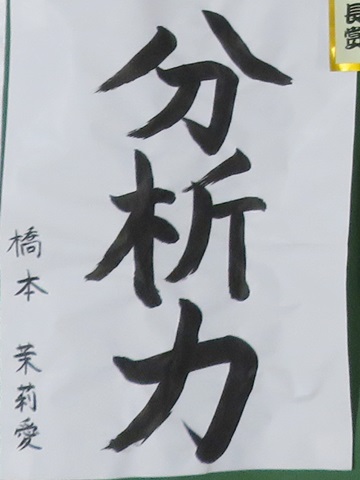 分析力
橋本 茉莉愛
長賞